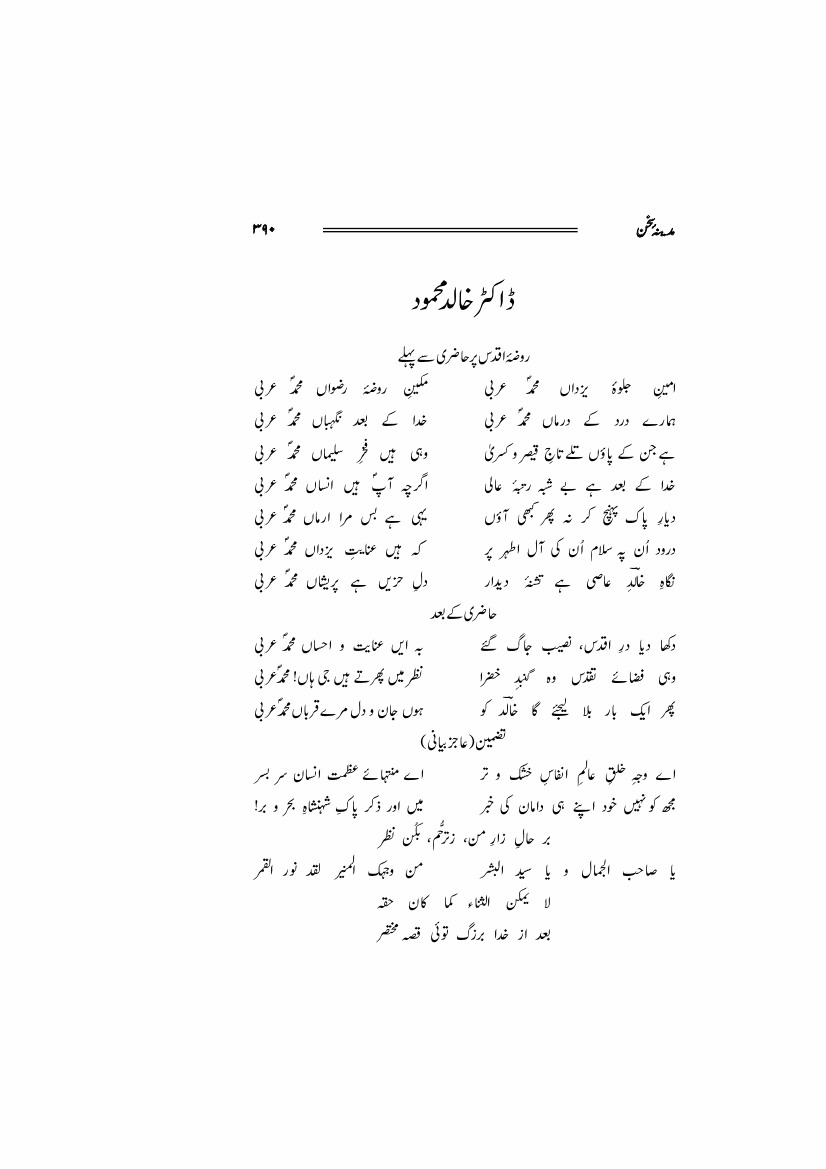 مدینۂ سخن ۳۹۰
ڈاکٹر خالد محمود
روضۂ اقدس پر حاضری سے پہلے
امینِ جلوۂ یزداں محمدؐ عربی مکینِ روضۂ رضواں محمدؐ عربی
ہمارے درد کے درماں محمدؐ عربی خدا کے بعد نگہباں محمدؐ عربی
ہے جن کے پاؤں تلے تاجِ قیصر و کسریٰ وہی ہیں فخرِ سلیماں محمدؐ عربی
خدا کے بعد ہے بے شبہ رتبۂ عالی اگرچہ آپؐ ہیں انساں محمدؐ عربی
دیارِ پاک پہنچ کر نہ پھر کبھی آؤں یہی ہے بس مرا ارماں محمدؐ عربی
درود اُن پہ سلام اُن کی آلِ اطہر پر کہ ہیں عنایتِ یزداں محمدؐ عربی
نگاہِ خالدِؔ عاصی ہے تشنۂ دیدار دلِ حزیں ہے پریشاں محمدؐ عربی
حاضری کے بعد
دکھا دیا درِ اقدس، نصیب جاگ گئے بہ ایں عنایت و احساں محمدؐ عربی
وہی فضائے تقدّس وہ گنبدِ خضرا نظر میں پھرتے ہیں جی ہاں! محمدؐ عربی
پھر ایک بار بلا لیجئے گا خالدؔ کو ہوں جان و دل مرے قرباں محمدؐ عربی
تضمین (عاجز بیانی)
اے وجہِ خلقِ عالمِ انفاسِ خشک و تر اے منتہائے عظمت انسان سر بسر
مجھ کو نہیں خود اپنے ہی دامان کی خبر میں اور ذکر پاکِ شہنشاہِ بحر و بر!
بر حالِ زارِ من، زترحُّم، بکُن نظر
یا صاحب الجمال و یا سید البشر من وجہک المنیر لقد نور القمر
لا یمکن الثناء کما کان حقہ
بعد از خدا بزرگ توئی قصہ مختصر